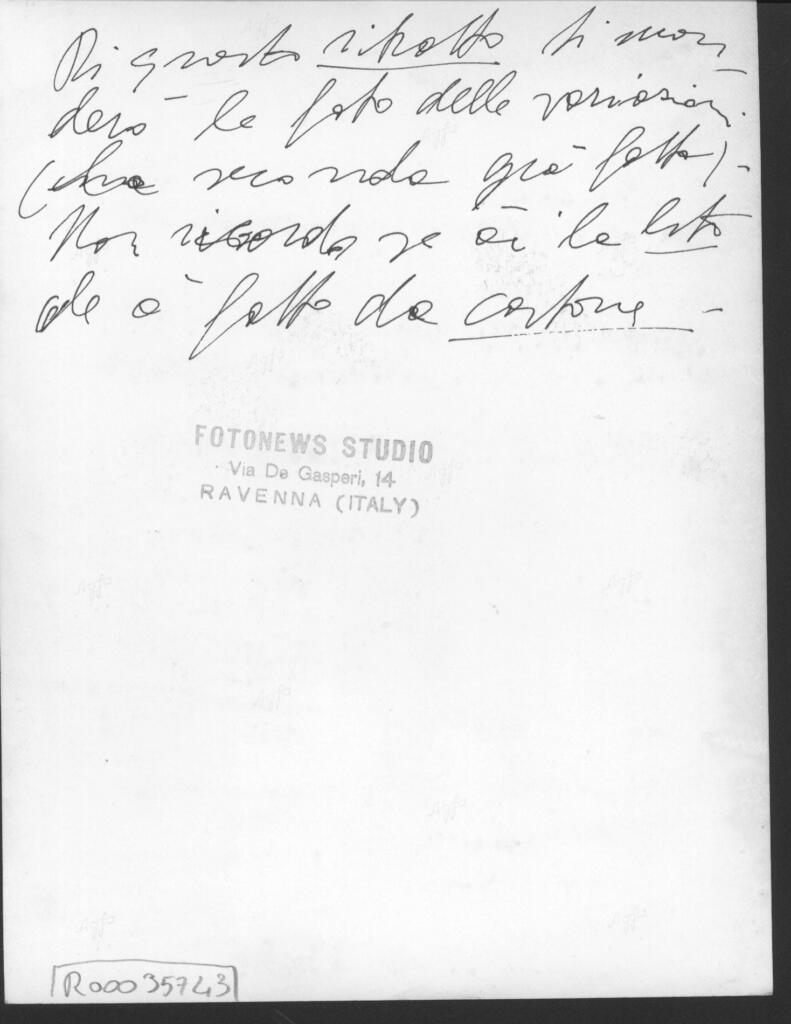 Di questo ritratto ti man
derò le foto delle variazioni.
(una seconda già fatta) -
Non ricordo se ài la foto
che è fatto da cartone -
FOTONEWS STUDIO
Via De Gasperi, 14
RAVENNA (ITALY)
R00035743